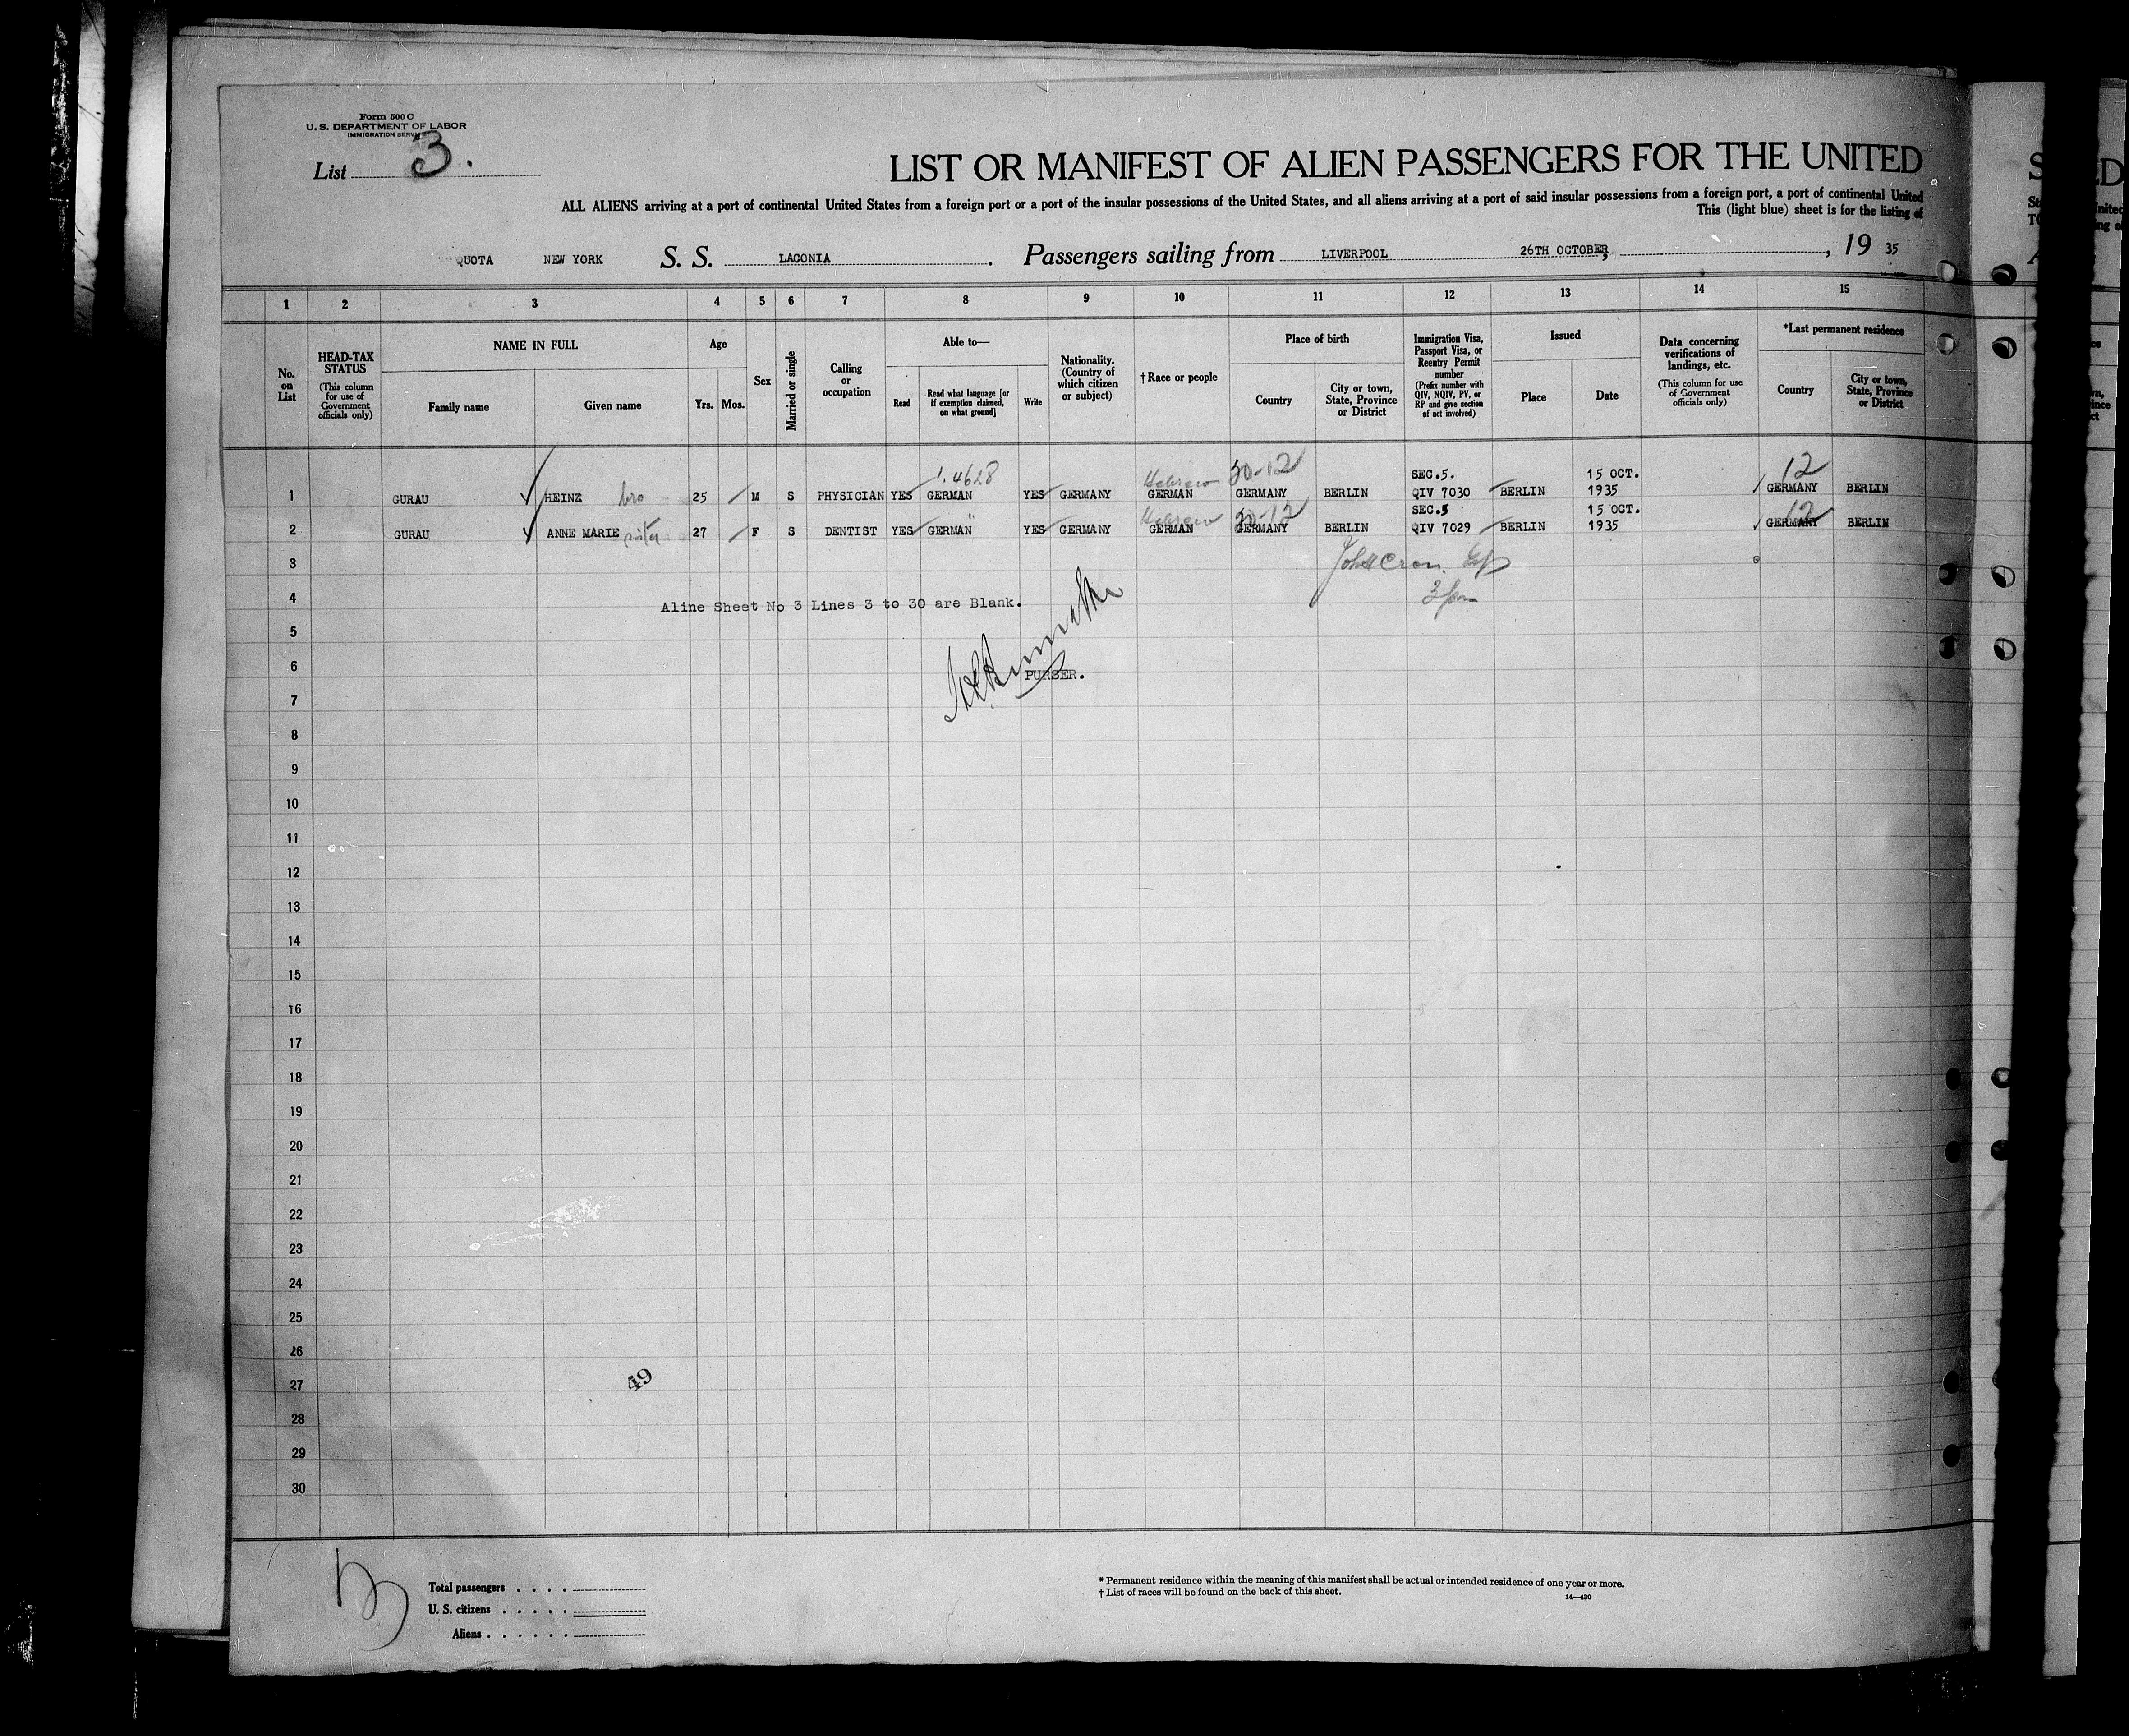 Form 500 C
U. S. DEPARTMENT OF LABOR
IMMIGRATION SERVICE
List 3.
LIST OR MANIFEST OF ALIEN PASSENGERS FOR THE UNITED
ALL ALIENS arriving at a port of continental United States from a foreign port or a port of the insular possessions of the United States, and all aliens arriving at a port of said insular possessions from a foreign port, a port of continental United
This (light blue) sheet is for the listing of
QUOTA NEW YORK S. S. LACONIA. Passengers sailing from LIVERPOOL 26TH OCTOBER, , 19 35
1 2 3 4 5 6 7 8 9 10 11 12 13 14 15
No. on List
HEAD-TAX STATUS
(This column for use of Government officials only)
NAME IN FULL
Family name
Given name
Age
Yrs. Mos.
Sex
Married or single
Calling or occupation
Able to—
Read
Read what language [or if exemption claimed, on what ground]
Write
Nationality. (Country of which citizen or subject)
†Race or people
Place of birth
Country
City or town, State, Province or District
Immigration Visa, Passport Visa, or Reentry Permit number
(Prefix number with QIV, NQIV, PV, or RP and give section of act involved)
Issued
Place
Date
Data concerning verifications of landings, etc.
(This column for use of Government officials only)
*Last permanent residence
Country
City or town, State, Province or District
1.4628 Hebrew 30-12 SEC.5. 15 OCT. 12
1 GURAU HEINZ bro 25 M S PHYSICIAN YES GERMAN YES GERMANY GERMAN GERMANY BERLIN QIV 7030 BERLIN 1935 GERMANY BERLIN
Hebrew 30-12 SEC.5 15 OCT. 12
2 GURAU ANNE MARIE sister 27 F S DENTIST YES GERMAN " YES GERMANY GERMAN GERMANY BERLIN QIV 7029 BERLIN 1935 GERMANY BERLIN
3
4 Aline Sheet No 3 Lines 3 to 30 are Blank.
5
6
PURSER.
7
8
9
10
11
12
13
14
15
16
17
18
19
20
21
22
23
24
25
26
27
49
28
29
30
Total passengers . . . .
U. S. citizens . . . . .
Aliens . . . . . .
* Permanent residence within the meaning of this manifest shall be actual or intended residence of one year or more.
† List of races will be found on the back of this sheet.
14—430